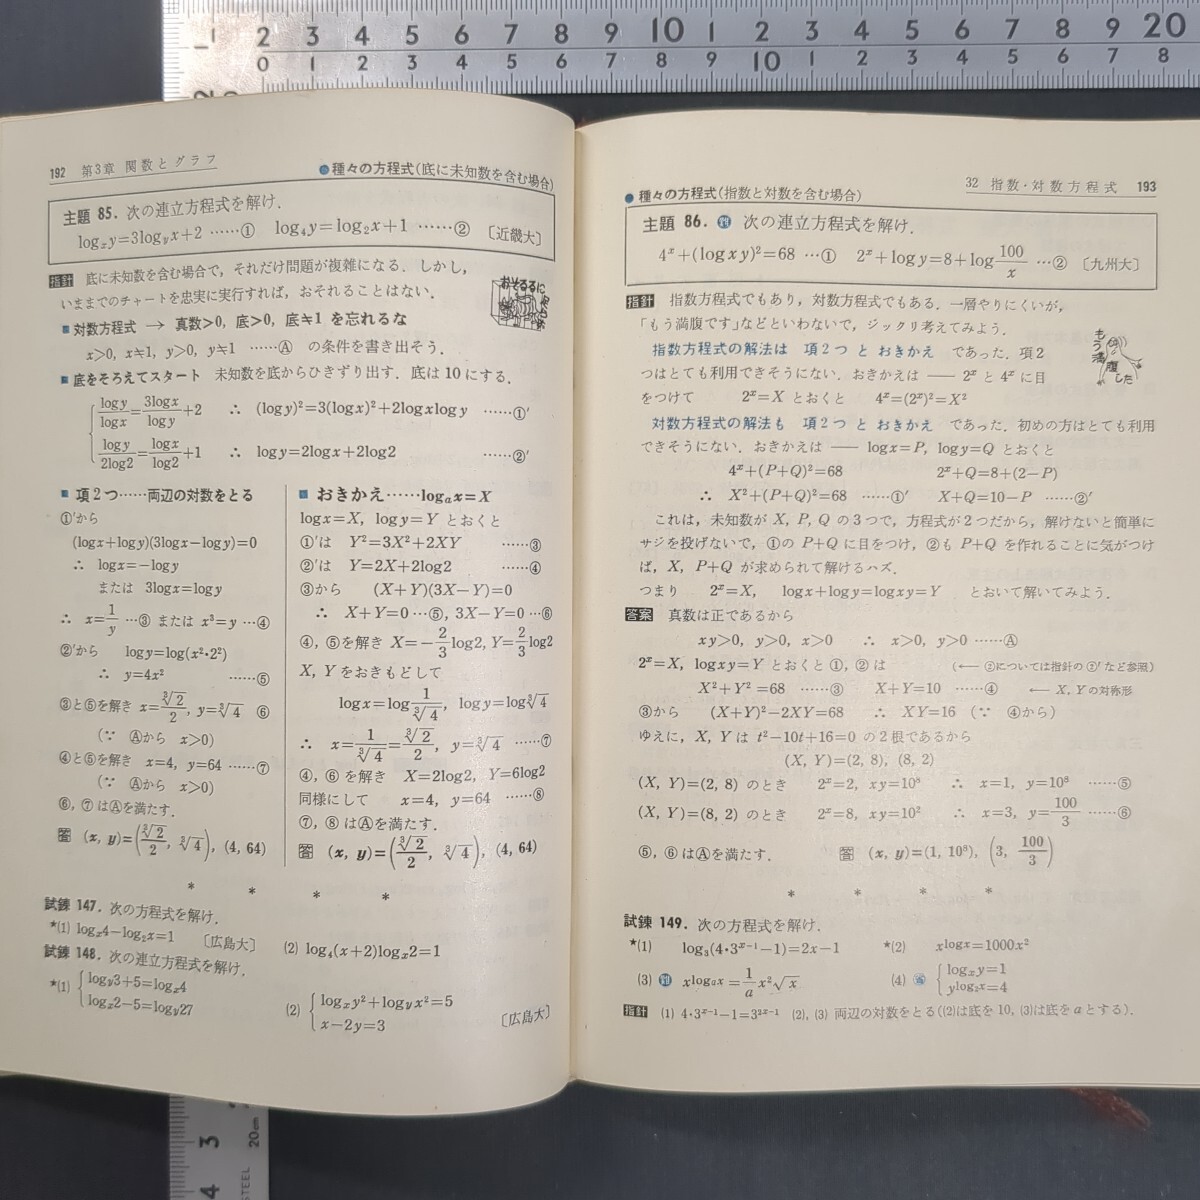 1 2 3 4 5 6 7 8 9 10 1 2 3 4 5 6 7 8 9 20
0 1 2 3 4 5 6 7 8 9 10 1 2 3 4 5 6 7 8
192 第3章 関数とグラフ
●種々の方程式(底に未知数を含む場合)
主題 85. 次の連立方程式を解け.
logₓy=3log_y x+2 ……① log₄y=log₂x+1 ……② 〔近畿大〕
指針 底に未知数を含む場合で，それだけ問題が複雑になる．しかし，
いままでのチャートを忠実に実行すれば，おそれることはない．
■ 対数方程式 → 真数>0, 底>0, 底≠1 を忘れるな
x>0, x≠1, y>0, y≠1 ……Ⓐ の条件を書き出そう．
■ 底をそろえてスタート 未知数を底からひきずり出す．底は 10 にする．
logy/logx=3logx/logy+2 ∴ (logy)²=3(logx)²+2logxlogy ……①′
logy/2log2=logx/log2+1 ∴ logy=2logx+2log2 ……②′
■ 項2つ……両辺の対数をとる
①′から
(logx+logy)(3logx−logy)=0
∴ logx=−logy
または 3logx=logy
∴ x=1/y …③ または x³=y …④
②′から logy=log(x²·2²)
∴ y=4x² ……⑤
③と⑤を解き x=∛2/2, y=∛4 ⑥
(∵ Ⓐから x>0)
④と⑤を解き x=4, y=64 ……⑦
(∵ Ⓐから x>0)
⑥, ⑦ はⒶを満たす．
答 (x, y)=(∛2/2, ∛4), (4, 64)
■ おきかえ……logₐx=X
logx=X, logy=Y とおくと
①′は Y²=3X²+2XY ……③
②′は Y=2X+2log2 ……④
③から (X+Y)(3X−Y)=0
∴ X+Y=0 …⑤, 3X−Y=0 …⑥
④, ⑤を解き X=−2/3log2, Y=2/3log2
X, Y をおきもどして
logx=log1/∛4, logy=log∛4
∴ x=1/∛4=∛2/2, y=∛4 ……⑦
④, ⑥ を解き X=2log2, Y=6log2
同様にして x=4, y=64 ……⑧
⑦, ⑧ はⒶを満たす．
答 (x, y)=(∛2/2, ∛4), (4, 64)
* * * *
試錬 147. 次の方程式を解け．
*(1) logₓ4−log₂x=1 〔広島大〕 (2) log₄(x+2)logₓ2=1
試錬 148. 次の連立方程式を解け．
*(1) log_y3+5=logₓ4
logₓ2−5=log_y27
(2) logₓy²+log_yx²=5
x−2y=3 〔広島大〕
32 指数・対数方程式 193
● 種々の方程式(指数と対数を含む場合)
主題 86. 次の連立方程式を解け．
4ˣ+(logxy)²=68 …① 2ˣ+logy=8+log100/x …② 〔九州大〕
指針 指数方程式でもあり，対数方程式でもある．一層やりにくいが，
「もう満腹です」などといわないで，ジックリ考えてみよう．
指数方程式の解法は 項2つ と おきかえ であった．項2
つはとても利用できそうにない．おきかえは ── 2ˣ と 4ˣ に目
をつけて 2ˣ=X とおくと 4ˣ=(2ˣ)²=X²
対数方程式の解法も 項2つ と おきかえ であった．初めの方はとても利用
できそうにない．おきかえは ── logx=P, logy=Q とおくと
4ˣ+(P+Q)²=68 2ˣ+Q=8+(2−P)
∴ X²+(P+Q)²=68 ……①′ X+Q=10−P ……②′
これは，未知数が X, P, Q の3つで，方程式が2つだから，解けないと簡単に
サジを投げないで，①の P+Q に目をつけ，②も P+Q を作れることに気がつけ
ば，X, P+Q が求められて解けるハズ．
つまり 2ˣ=X, logx+logy=logxy=Y とおいて解いてみよう．
答案 真数は正であるから
xy>0, y>0, x>0 ∴ x>0, y>0 ……Ⓐ
2ˣ=X, logxy=Y とおくと ①, ② は (← ②については指針の②′など参照)
X²+Y²=68 ……③ X+Y=10 ……④ ← X, Y の対称形
③から (X+Y)²−2XY=68 ∴ XY=16 (∵ ④から)
ゆえに，X, Y は t²−10t+16=0 の2根であるから
(X, Y)=(2, 8), (8, 2)
(X, Y)=(2, 8) のとき 2ˣ=2, xy=10⁸ ∴ x=1, y=10⁸ ……⑤
(X, Y)=(8, 2) のとき 2ˣ=8, xy=10² ∴ x=3, y=100/3 ……⑥
⑤, ⑥ はⒶを満たす． 答 (x, y)=(1, 10⁸), (3, 100/3)
* * * *
試錬 149. 次の方程式を解け．
*(1) log₃(4·3ˣ⁻¹−1)=2x−1 *(2) x^logx=1000x²
(3) x^logₐx=1/a x²√x (4) logₓy=1
y^log₂x=4
指針 (1) 4·3ˣ⁻¹−1=3²ˣ⁻¹ (2), (3) 両辺の対数をとる((2)は底を 10, (3)は底を a とする)．
3
4
20cm
STEEL